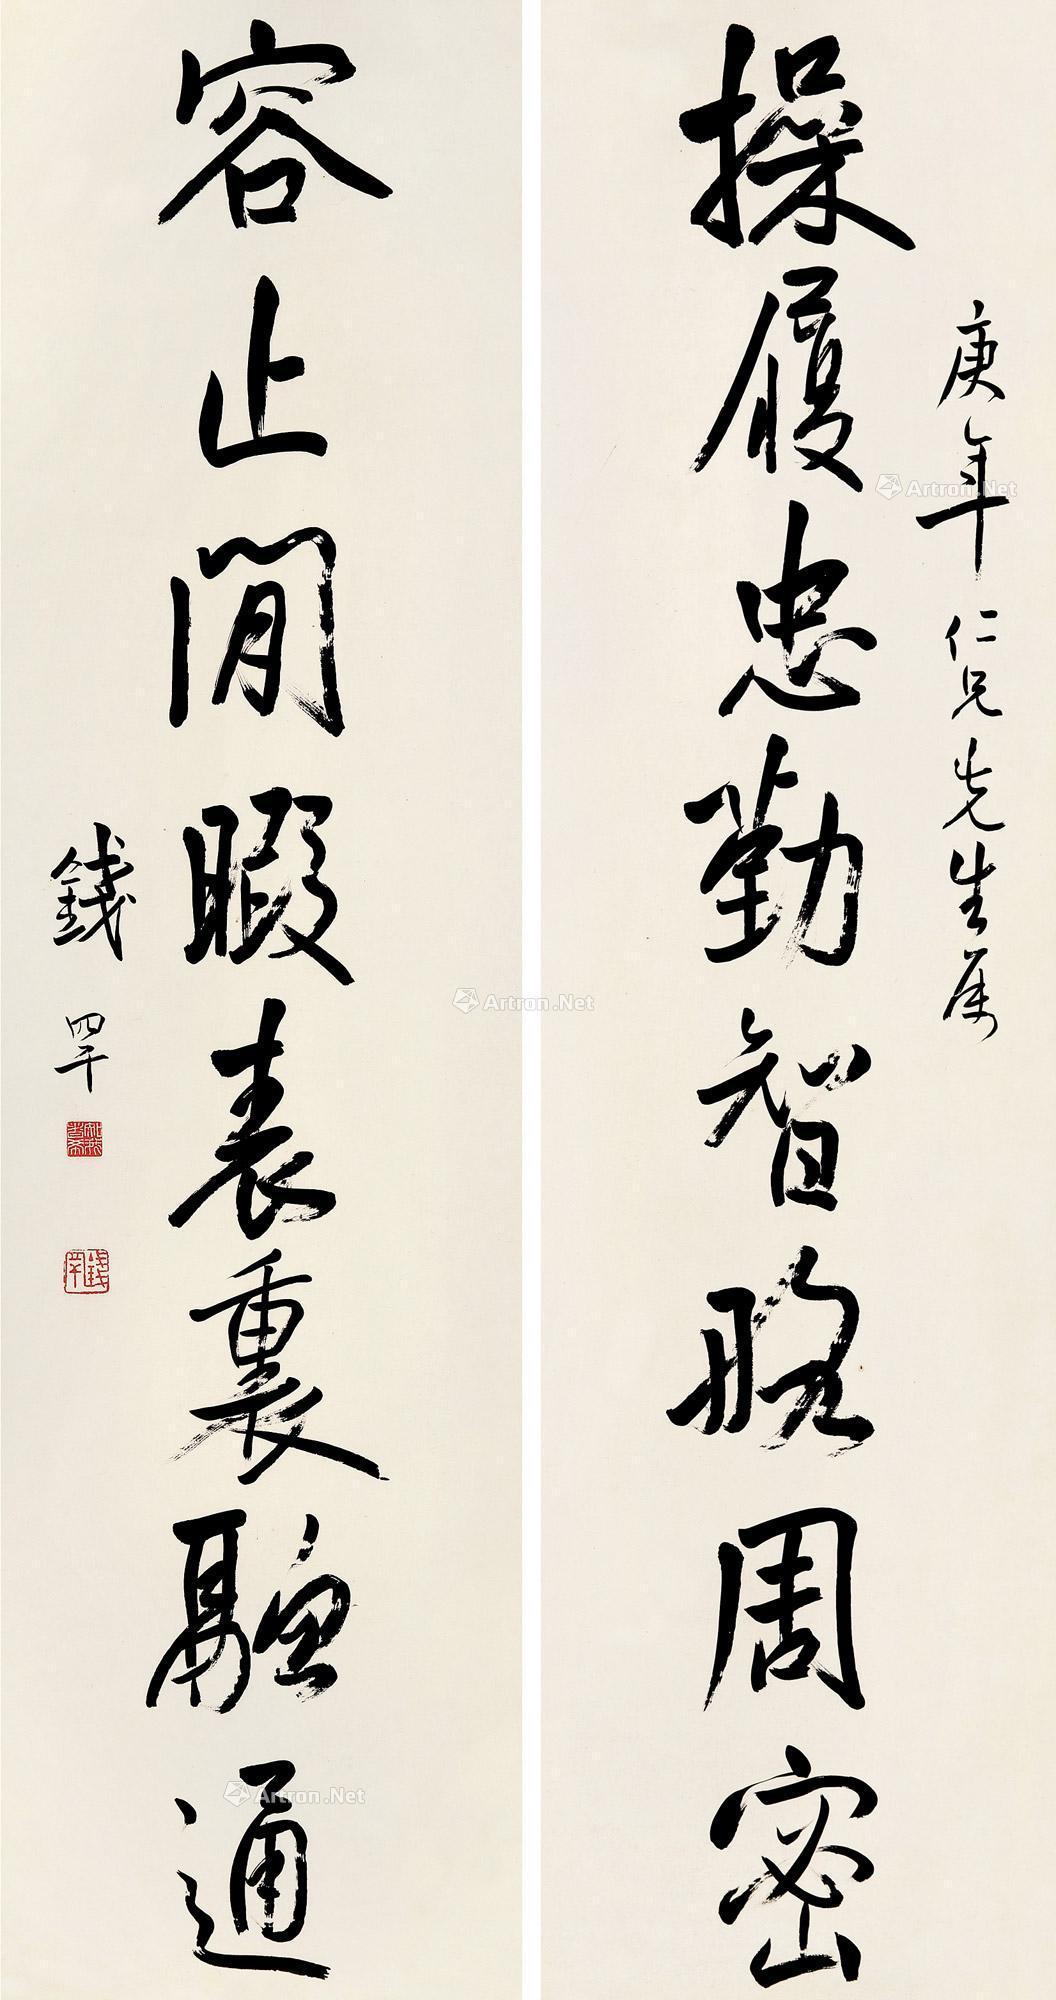 庚年仁兄先生属
操履忠勤智略周密
容止閒暇表裏融通
錢罕
Artron.Net
Artron.Net
Artron.Net